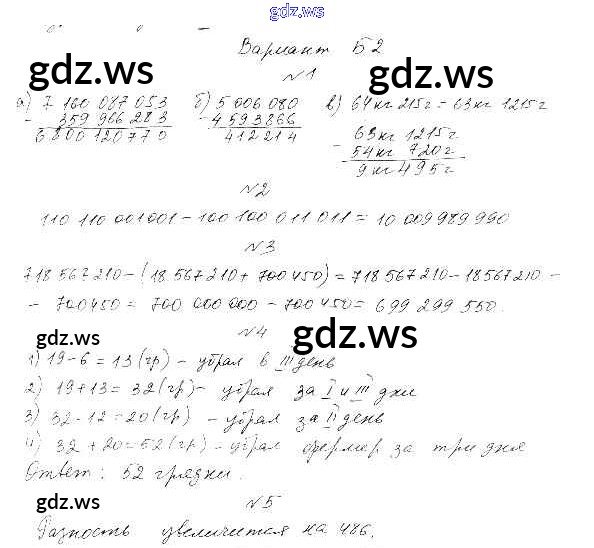 gdz.ws
Вариант Б2
gdz.ws gdz.ws
№1
а) 7 160 087 053 б) 5 006 080 в) 64кг 215г = 63кг 1215г
- 359 966 283 - 4 593 866 63кг 1215г
6 800 120 770 412 214 - 54кг 720г
9кг 495г
№2
110 110 001001 - 100 100 011 011 = 10 009 989 990
№3
718 567 210 - (18 567 210 + 700 450) = 718 567 210 - 18567210 -
- 700450 = 700 000 000 - 700 450 = 699 299 550.
gdz.ws №4 gdz.ws
1) 19-6 = 13 (гр) - убрал в III день
2) 19+13 = 32 (гр) - убрал за I и III дни
3) 32-12=20 (гр) - убрал за II день
4) 32+20=52 (гр) - убрал фермер за три дня
Ответ: 52 грядки.
gdz.ws №5 gdz.ws
Разность увеличится на 486.